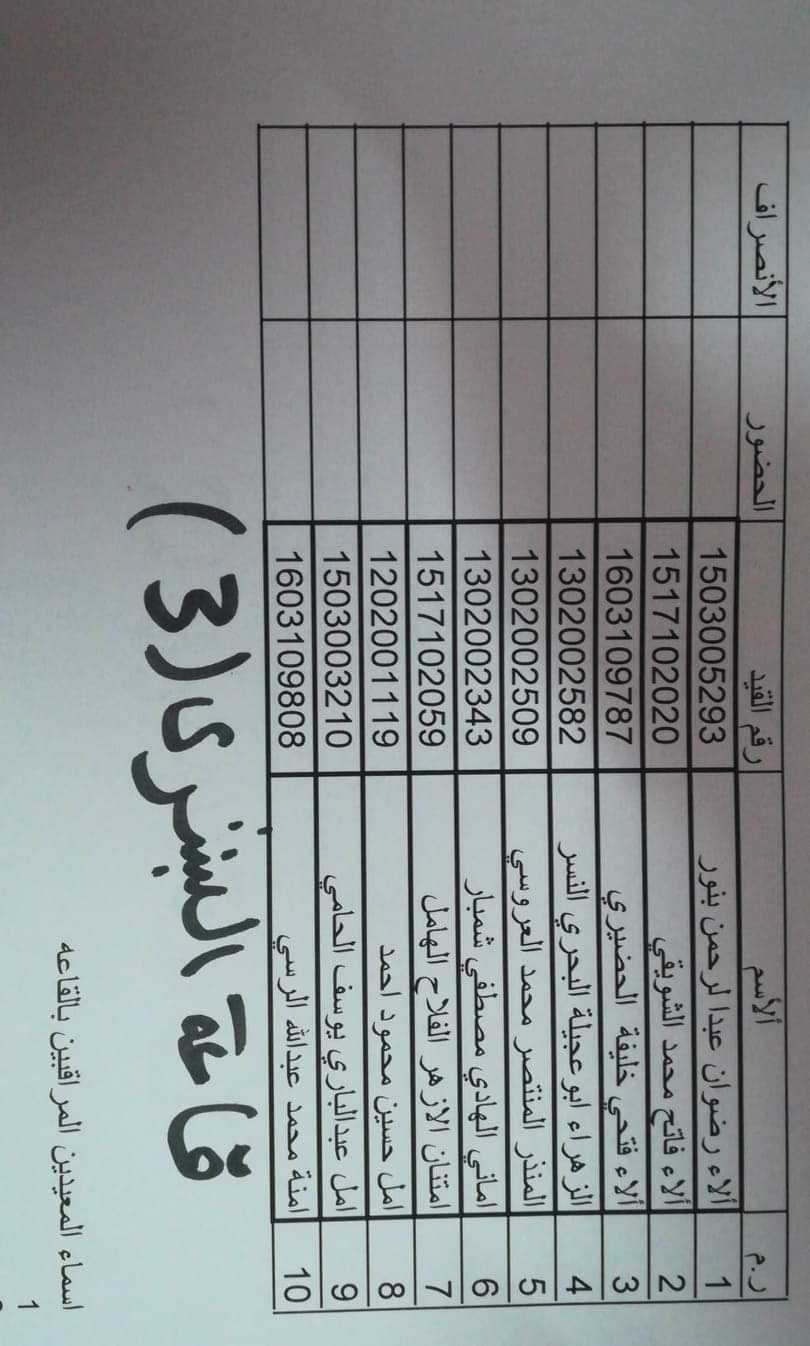 ر.م الأسم رقم القيد الحضور الأنصراف
1 ألاء رضوان عبدا لرحمن بنور 1503005293
2 ألاء فاتح محمد الشويقي 1517102020
3 ألاء فتحي خليفة الحضيري 1603109787
4 الزهراء ابو عجيلة البحري النسر 1302002582
5 المنذر المنتصر محمد العروسي 1302002509
6 اماني الهادي مصطفي شمبار 1302002343
7 امتنان الازهر الفلاح الهامل 1517102059
8 امل حسين محمود احمد 1202001119
9 امل عبدالباري يوسف الحامي 1503003210
10 امنة محمد عبدالله الرسي 1603109808
قاعة البشرى (3)
اسماء المعيدين المراقبين بالقاعه
1